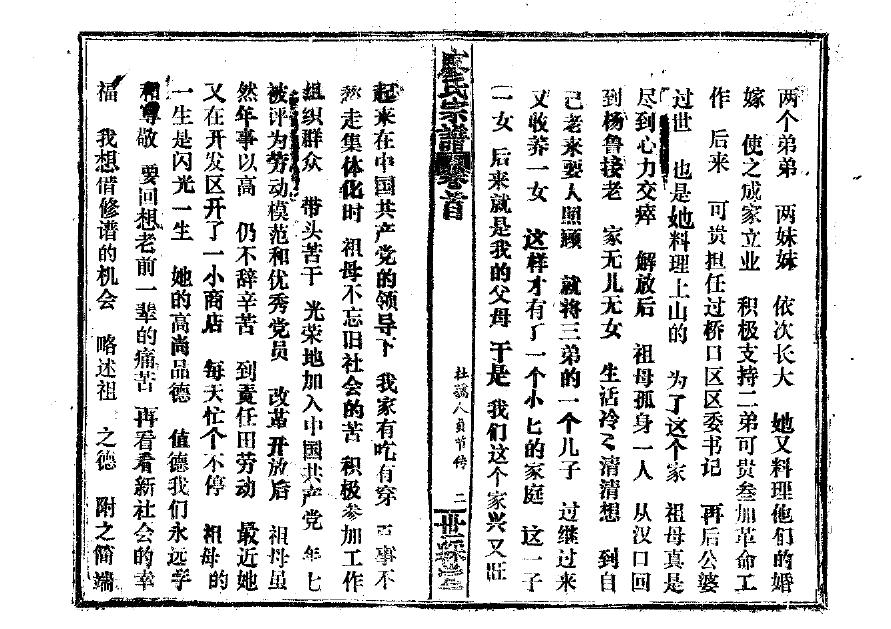 两个弟弟 两妹妹 依次长大 她又料理他们的婚
嫁 使之成家立业 积极支持二弟可贵叁加革命工
作 后来 可贵担任过桥口区区委书记 再后公婆
过世 也是她料理上山的 为了这个家 祖母真是
尽到心力交瘁 解放后 祖母孤身一人 从汉口回
到杨鲁接老 家无儿无女 生活冷〻清清想 到自
己老来要人照顾 就将三弟的一个儿子 过继过来
又收养一女 这样才有了一个小匕的家庭 这一子
一女 后来就是我的父母 于是 我们这个家兴又旺
氏宗谱 卷首
杜 人贞节传 二
起来在中国共产党的领导下 我家有吃有穿 事不
然走集体化时 祖母不忘旧社会的苦 积极参加工作
组织群众 带头苦干 光荣地加入中国共产党 年七
被评为劳动模范和优秀党员 改革开放后 祖母虽
然年事以高 仍不辞辛苦 到责任田劳动 最近她
又在开发区开了一小商店 每天忙个不停 祖母的
一生是闪光一生 她的高尚品德 值德我们永远学
和尊敬 要回想老前一辈的痛苦 再看看新社会的幸
福 我想借修谱的机会 略述祖 之德 附之简端